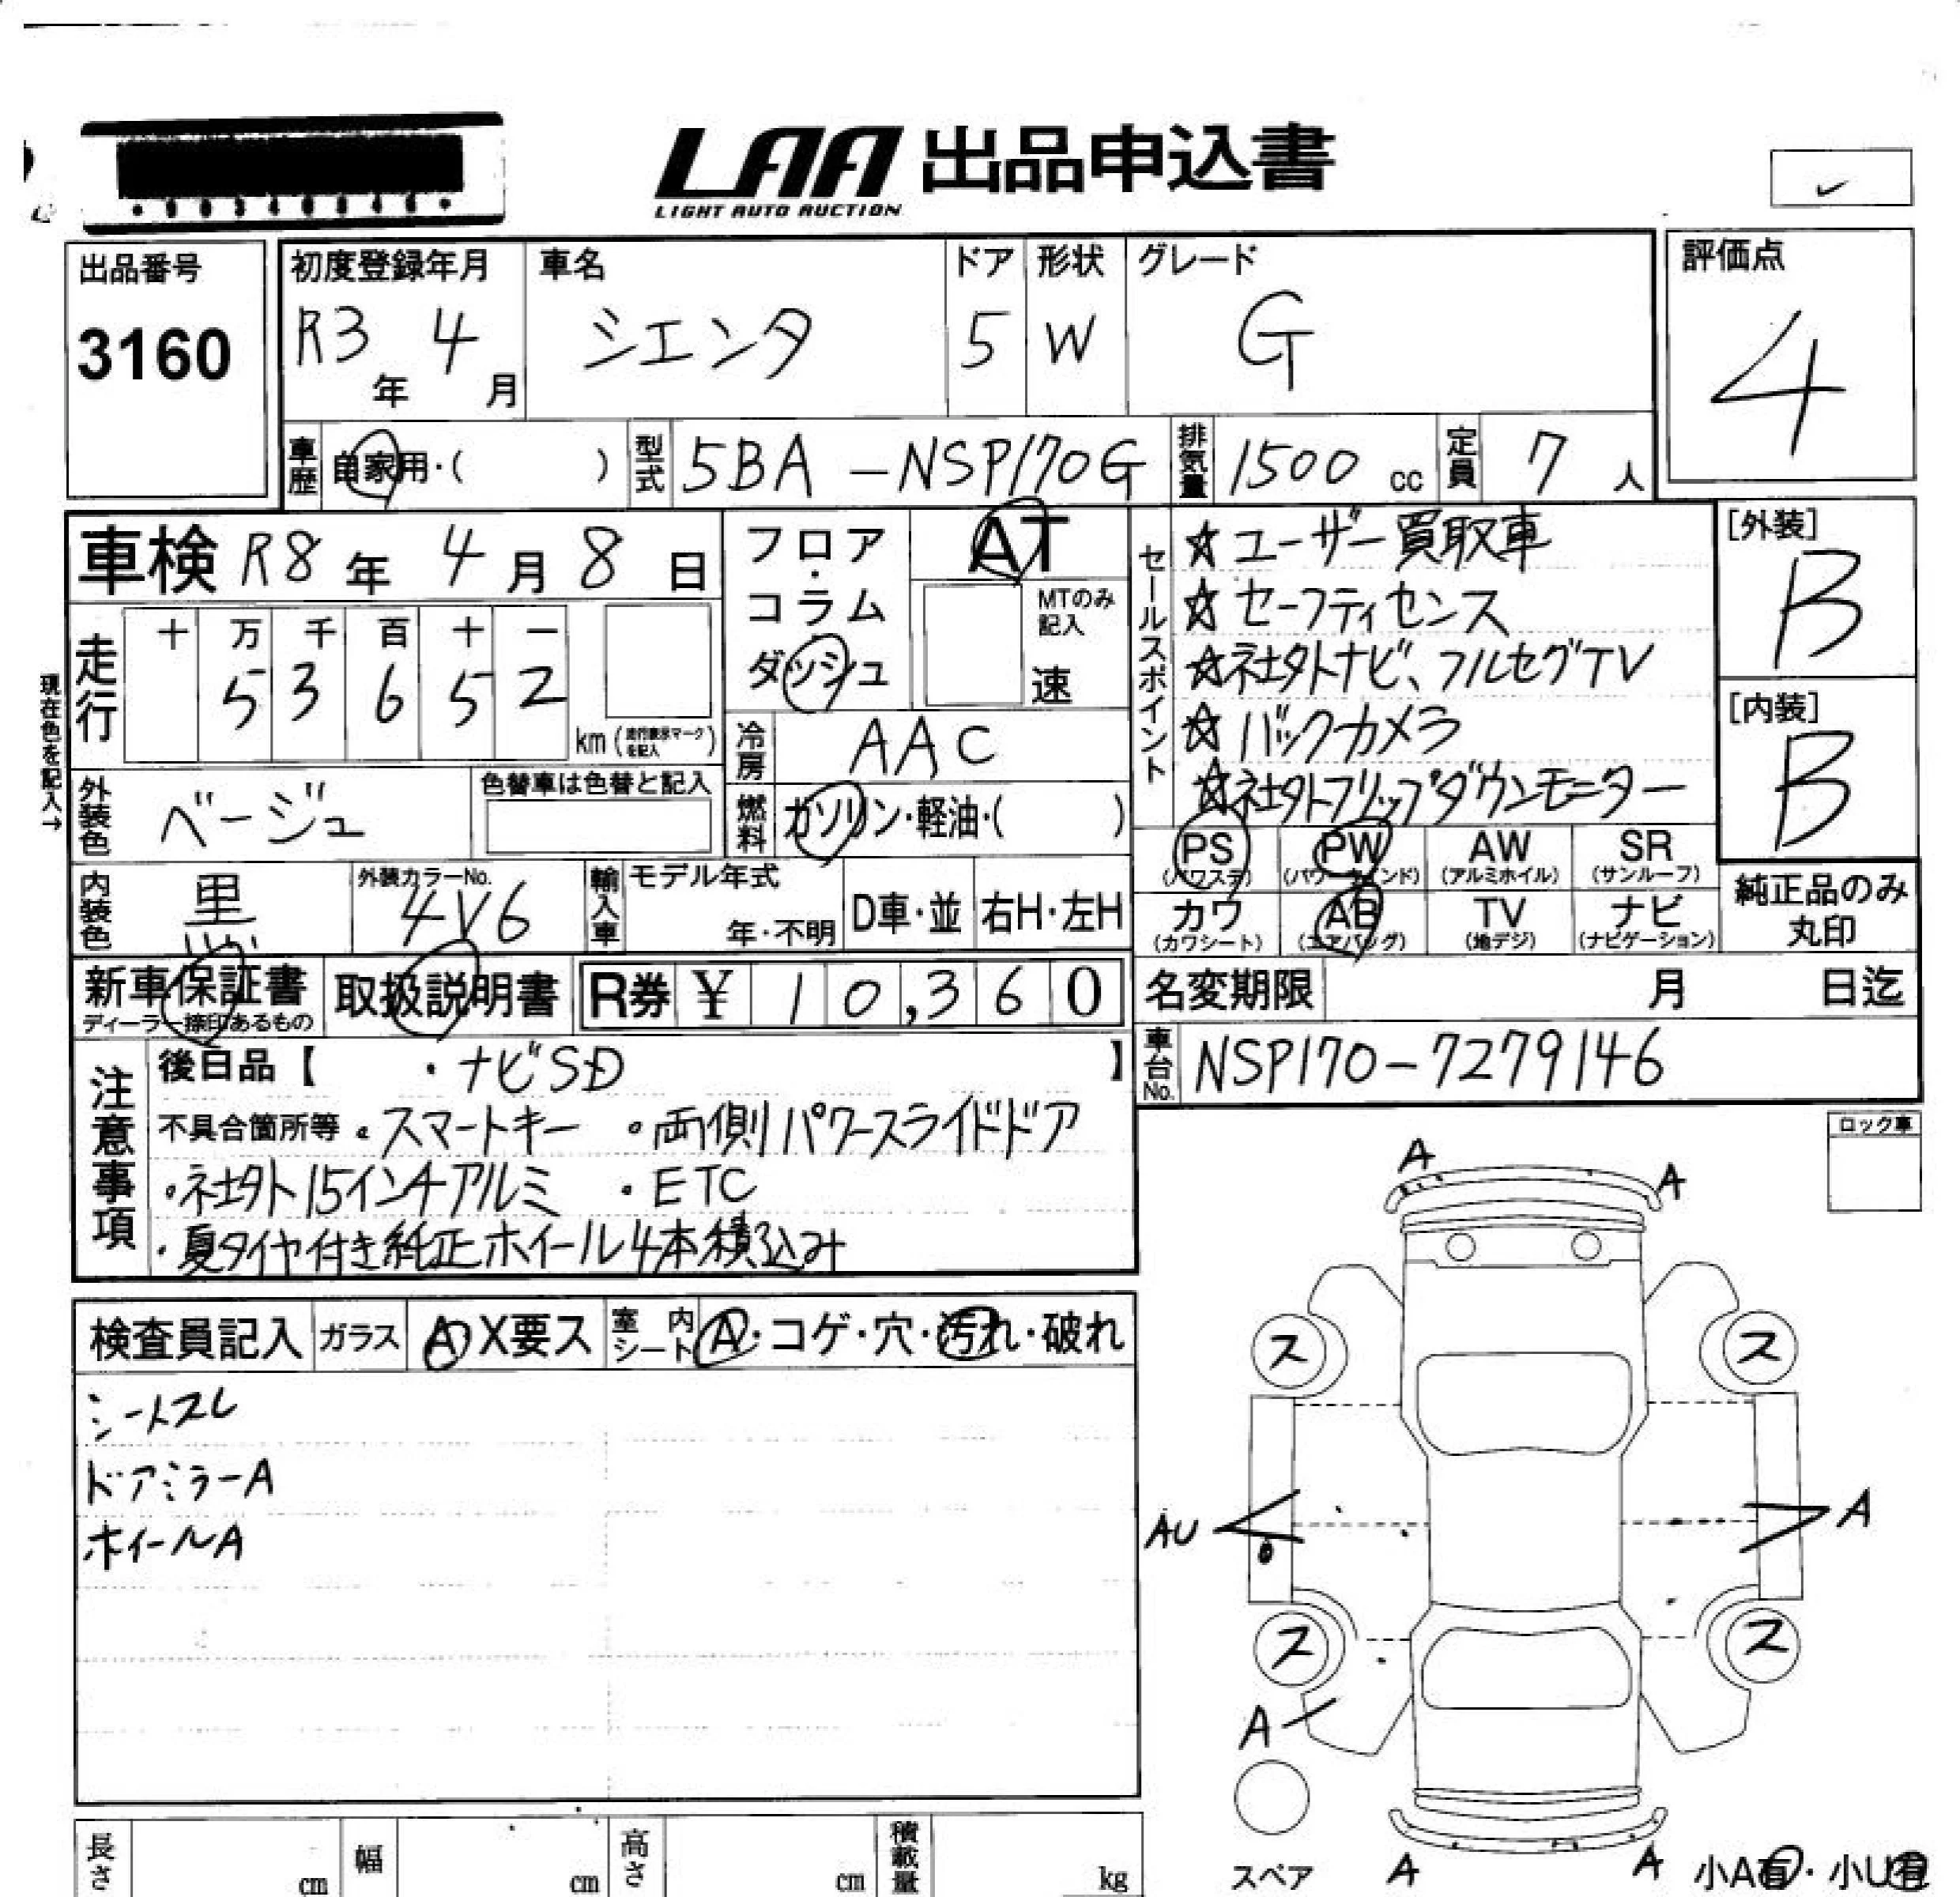 LAA 出品申込書
LIGHT AUTO AUCTION
出品番号
3160
初度登録年月
R3年 4月
車名
シエンタ
ドア
5
形状
W
グレード
G
評価点
4
車歴 自家用・( )
型式 5BA-NSP170G
排気量 1500 cc
定員 7人
車検 R8年 4月 8日
走行
十 万 千 百 十 一
5 3 6 5 2
km (走行表示マークを記入)
現在色を記入→
外装色 ベージュ
色替車は色替と記入
内装色 黒
外装カラーNo.
4V6
フロア・コラム
ダッシュ
AT
MTのみ記入
速
冷房 AAC
燃料 ガソリン・軽油・( )
輸入車
モデル年式
年・不明
D車・並
右H・左H
セールスポイント
☆ユーザー買取車
☆セーフティセンス
☆社外ナビ、フルセグTV
☆バックカメラ
☆社外フリップダウンモニター
[外装]
B
[内装]
B
PS (パワステ)
PW (パワーウィンド)
AW (アルミホイル)
SR (サンルーフ)
カワ (カワシート)
AB (エアバッグ)
TV (地デジ)
ナビ (ナビゲーション)
純正品のみ丸印
新車保証書
ディーラー捺印あるもの
取扱説明書
R券 ¥10,360
名変期限 月 日迄
車台No. NSP170-7279146
注意事項
後日品【 ・ナビSD 】
不具合箇所等 ・スマートキー ・両側パワースライドドア
・社外15インチアルミ ・ETC
・夏タイヤ付き純正ホイール4本積込み
ロック車
検査員記入 ガラス A・X要ス 室内シート A・コゲ・穴・汚れ・破れ
シートスレ
ドアミラーA
ホイールA
A A
ス ス
AU A
ス ス
A
スペア
A A
小A有・小U有
長さ cm
幅 cm
高さ cm
積載量 kg